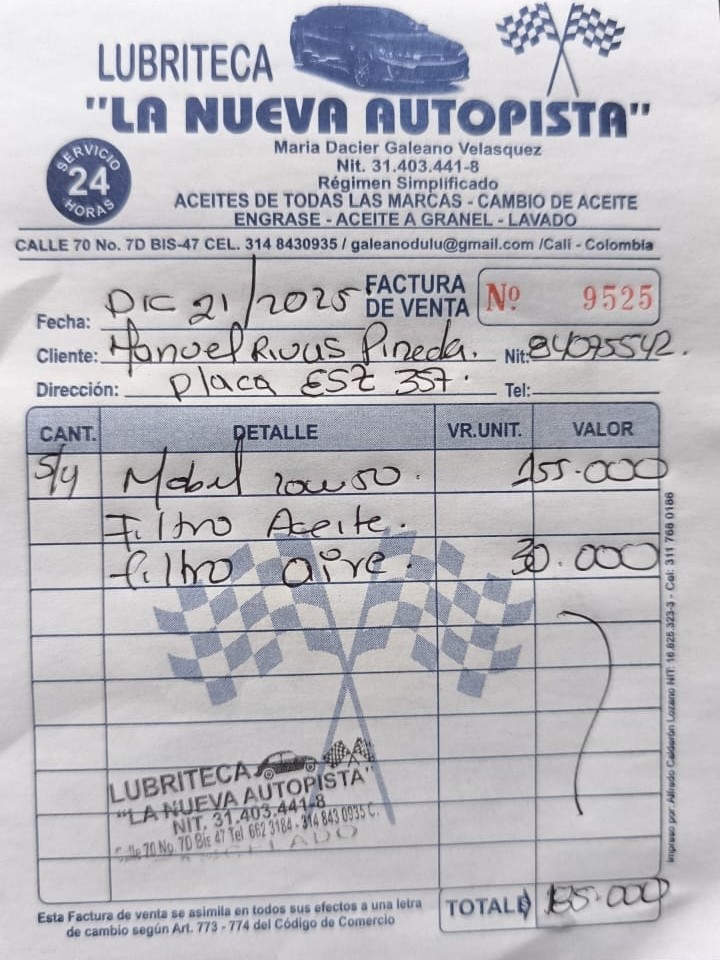 LUBRITECA
"LA NUEVA AUTOPISTA"
Maria Dacier Galeano Velasquez
Nit. 31.403.441-8
Régimen Simplificado
SERVICIO 24 HORAS
ACEITES DE TODAS LAS MARCAS - CAMBIO DE ACEITE
ENGRASE - ACEITE A GRANEL - LAVADO
CALLE 70 No. 7D BIS-47 CEL. 314 8430935 / galeanodulu@gmail.com /Cali - Colombia
Fecha: DIC 21/2025 FACTURA DE VENTA Nº 9525
Cliente: Manuel Rivas Pineda. Nit: 84075542.
Dirección: Placa ESZ 357. Tel:
CANT. DETALLE VR.UNIT. VALOR
5/4 Mobil 20w50. 155.000
Filtro Aceite.
filtro aire. 30.000
LUBRITECA
"LA NUEVA AUTOPISTA"
NIT. 31.403.441-8
Calle 70 No. 7D Bis 47 Tel. 662 3184 - 314 843 0935 C.
TOTAL$ 185.000
Esta Factura de venta se asimila en todos sus efectos a una letra
de cambio según Art. 773 - 774 del Código de Comercio
Impreso por: Alfredo Calderón Lozano NIT: 16.625.323-3 - Cel: 311 766 0186